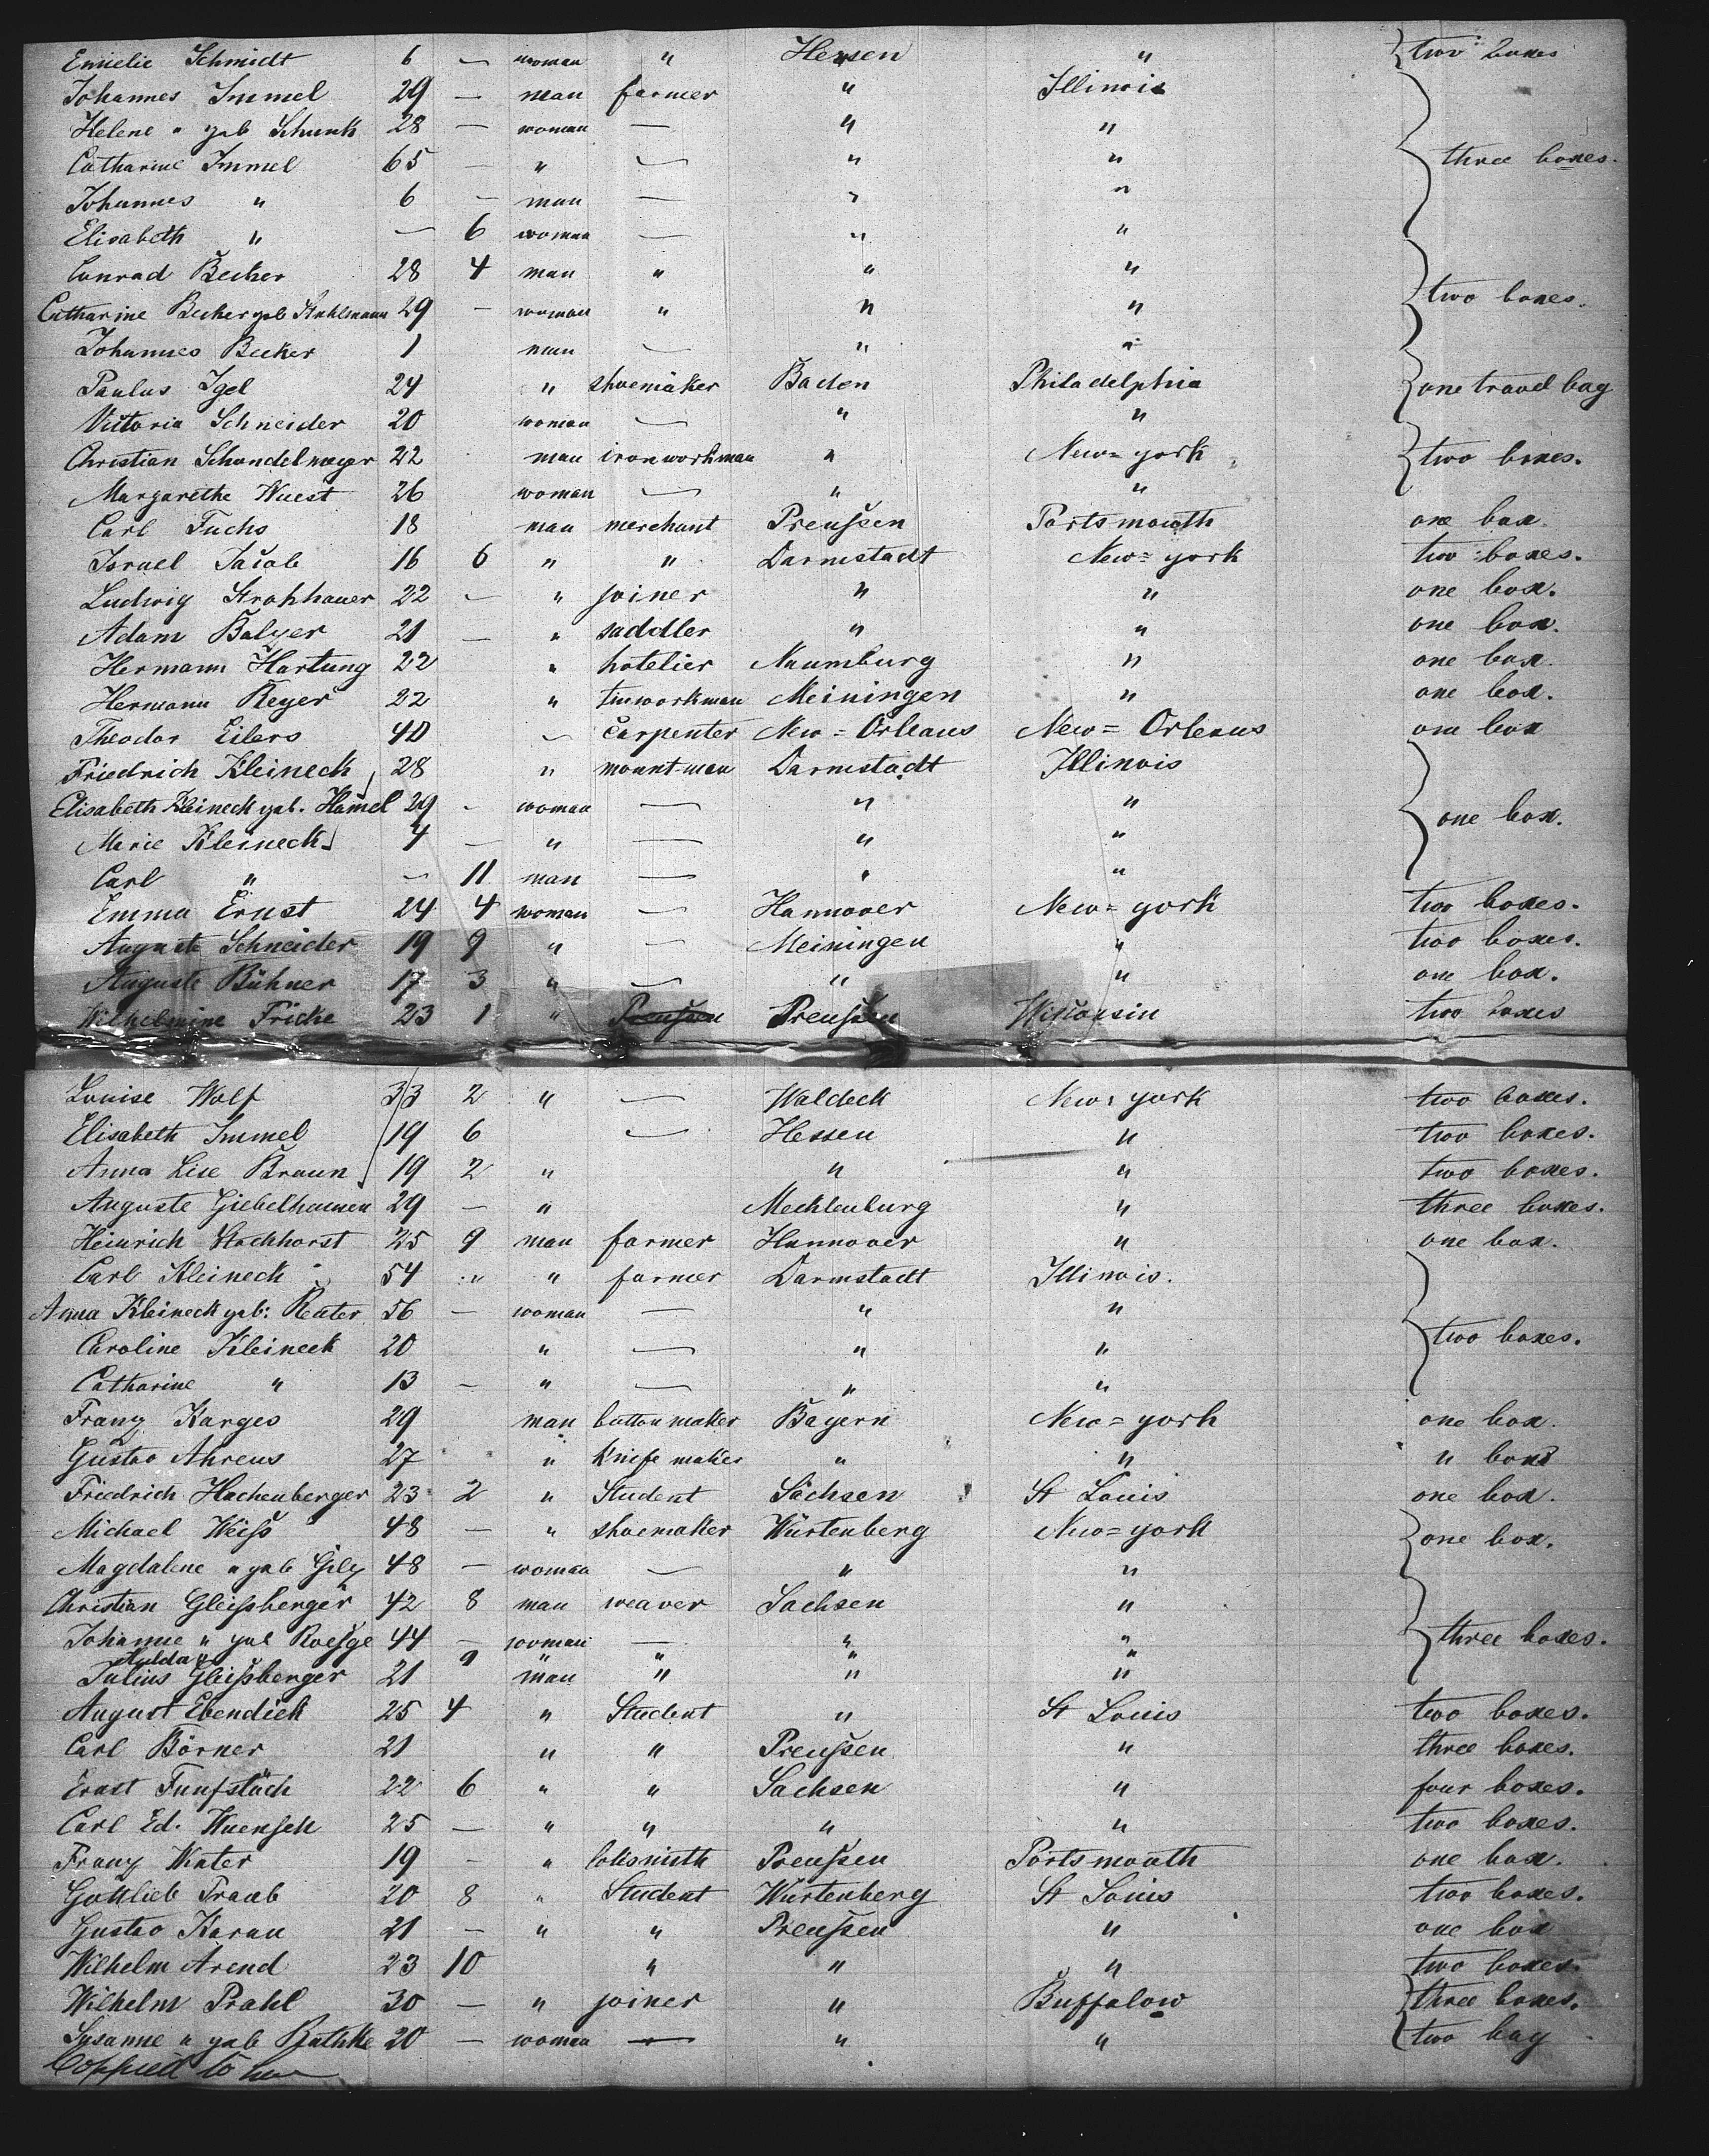 Emielie Schmidt 6 — woman " Hessen " two boxes
Johannes Immel 29 — man farmer " Illinois
Helene " geb Schunk 28 — woman — " "
Catharine Immel 65 — " — " " three boxes.
Johannes " 6 — man — " "
Elisabeth " — 6 woman — " "
Conrad Becker 28 4 man " " "
Catharine Becker geb Stuhlmann 29 — woman " " " two boxes.
Johannes Becker 1 man — " "
Paulus Igel 24 " shoemaker Baden Philadelphia one travel bag
Victoria Schneider 20 woman — " "
Christian Schondelmayer 22 man ironworkman " New=york two boxes.
Margarethe Wuest 26 woman — " "
Carl Fuchs 18 man merchant Preußen Portsmouth one box.
Israel Jacob 16 6 " " Darmstadt New=york two boxes.
Ludwig Strohhauer 22 — " joiner " " one box.
Adam Balyer 21 — " saddler " " one box.
Hermann Hartung 22 " hotelier Naumburg " one box.
Hermann Reyer 22 " tinworkman Meiningen " one box.
Theodor Eilers 40 " Carpenter New=Orleans New=Orleans one box
Friedrich Kleineck 28 " mount-man Darmstadt Illinois
Elisabeth Kleineck geb. Hamel 29 - woman — " "
Marie Kleineck 4 — " — " " one box.
Carl " — 11 man — " "
Emma Ernst 24 4 woman — Hannover New=york two boxes.
Auguste Schneider 19 9 " — Meiningen " two boxes.
Auguste Bühner 17 3 " — " " one box.
Wilhelmine Fricke 23 1 " Preußen Preußen Wisconsin two boxes
Louise Wolf 33 2 " — Waldeck New=york two boxes.
Elisabeth Immel 19 6 — Hessen " two boxes.
Anna Lise Braun 19 2 " " " two boxes.
Auguste Giebelhausen 29 — " Mecklenburg " three boxes.
Heinrich Stockhorst 25 9 man farmer Hannover " one box.
Carl Kleineck 54 " " farmer Darmstadt Illinois.
Anna Kleineck geb: Reuter 56 — woman — " "
Caroline Kleineck 20 " — " " two boxes.
Catharine " 13 — " — " "
Franz Karges 29 man button maker Bayern New=york one box.
Gustav Ahrens 27 " Knife maker " " " box
Friedrich Hachenberger 23 2 " Student Sachsen St Louis one box.
Michael Weiß 48 — " shoemaker Würtenberg New=york one box.
Magdalene " geb Gily 48 — woman — " "
Christian Gleißberger 42 8 man weaver Sachsen "
Johanne " geb Roeßge 44 — woman — " " three boxes.
Aulda " 9 " " " "
Julius Gleißberger 21 man " " "
August Ebendick 25 4 " Student " St Louis two boxes.
Carl Börner 21 " " Preußen " three boxes.
Ernst Funfstück 22 6 " " Sachsen " four boxes.
Carl Ed. Wuensch 25 — " " " " two boxes.
Franz Water 19 — " Preußen Portsmouth one box.
Gottlieb Traub 20 8 " Student Würtenberg St Louis two boxes.
Gustav Karau 21 — " " Preußen " one box
Wilhelm Arend 23 10 " " " two boxes.
Wilhelm Prahl 30 — " joiner " Buffalow three boxes.
Susanne " geb Buthke 20 — woman — " " two bag
Coppied to here